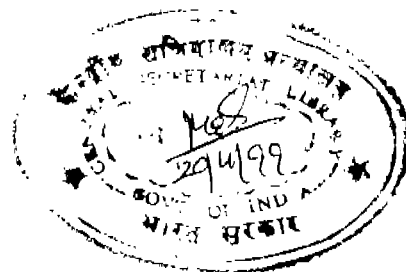 केन्द्रीय सचिवालय ग्रन्थालय
CENTRAL SECRETARIAT LIBRARY
20/4/99
GOVT OF INDIA
भारत सरकार